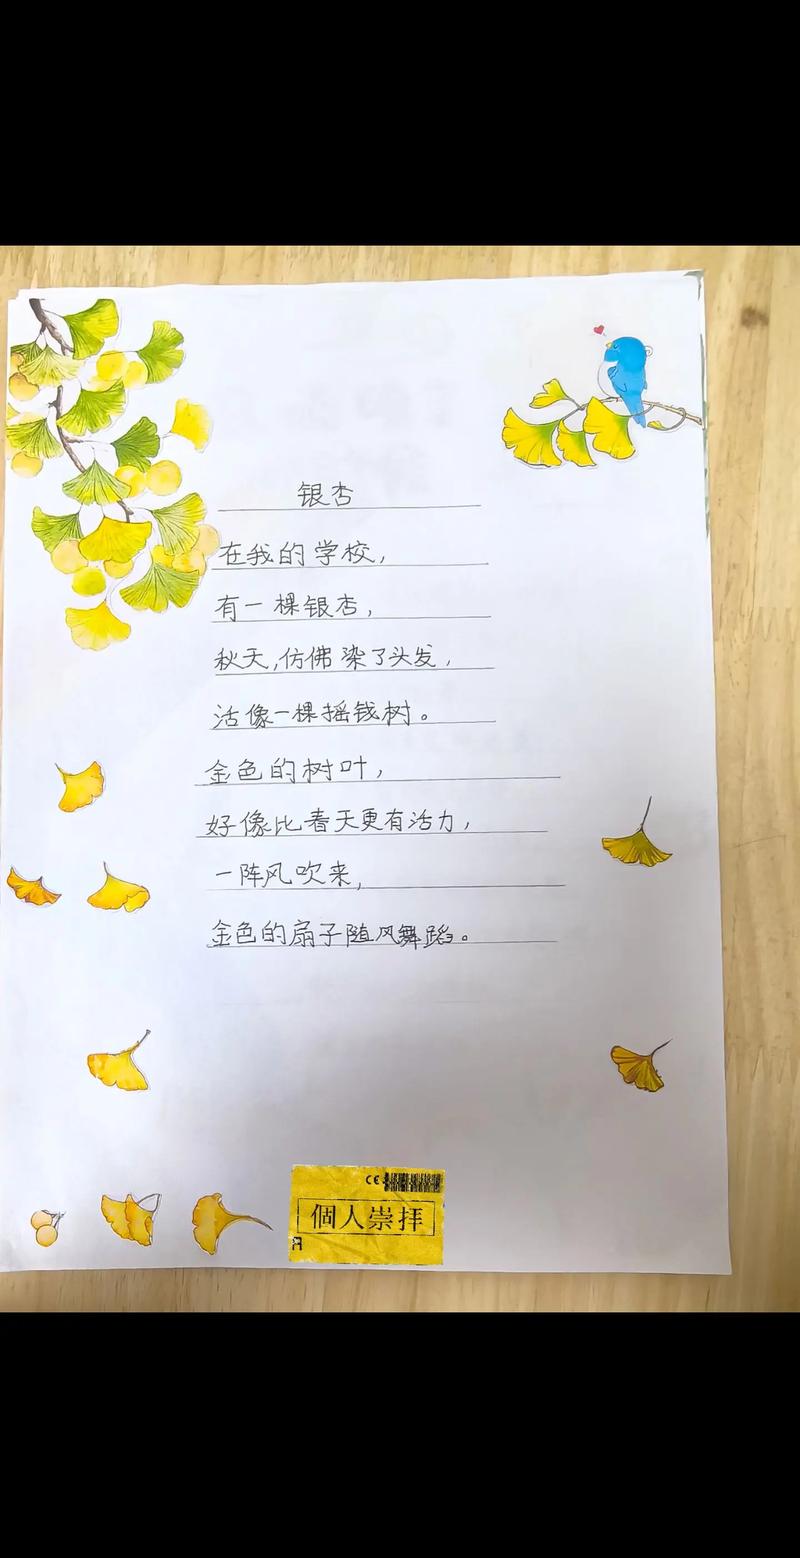 银杏
在我的学校，
有一棵银杏，
秋天，仿佛染了头发，
活像一棵摇钱树。
金色的树叶，
好像比春天更有活力，
一阵风吹来，
金色的扇子随风舞蹈。
CE
個人崇拜